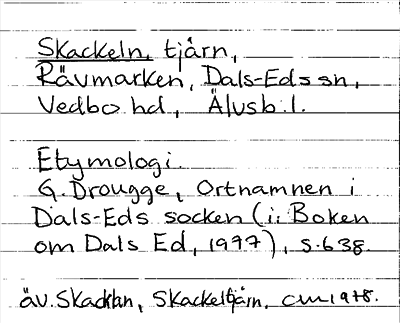 Skackeln, tjärn,
Rävmarken, Dals-Eds sn,
Vedbo hd, Älvsb.l.
Etymologi.
G. Drougge, Ortnamnen i
Dals-Eds socken (i: Boken
om Dals Ed, 1977), s. 638.
äv. Skacklan, Skackeltjärn. CM 1978.